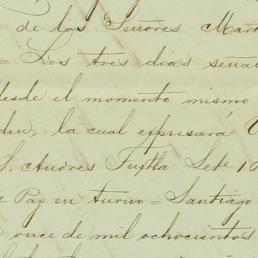 de los Señores Mart
= Los tres dias senal
desde el momento mismo
den, la cual expresará
S. Andres Tuxtla Sete 10
Paz en turno = Santiago
once de mil ochocientos